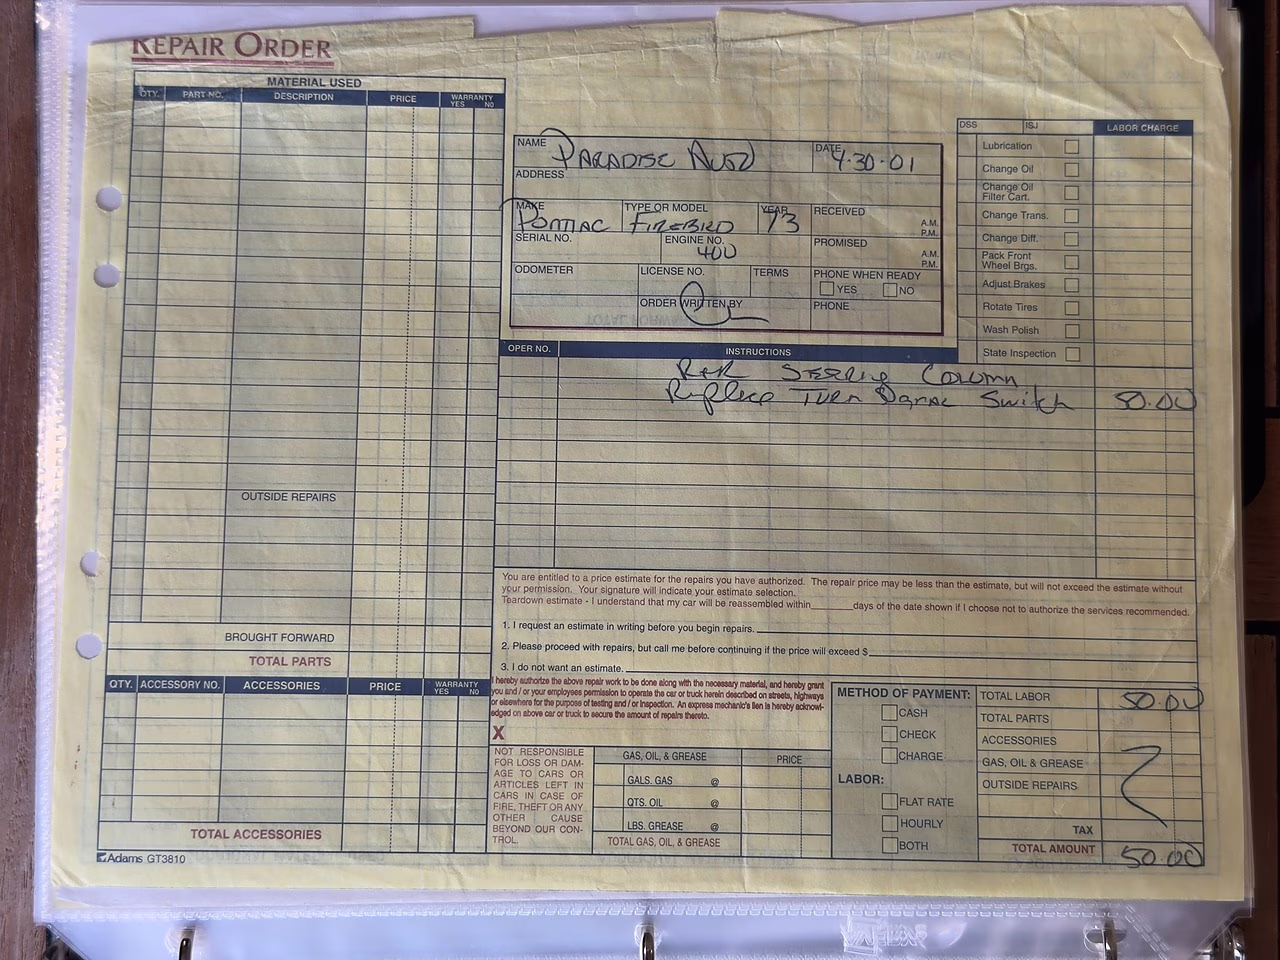 REPAIR ORDER
MATERIAL USED
QTY. PART NO. DESCRIPTION PRICE WARRANTY YES NO
OUTSIDE REPAIRS
BROUGHT FORWARD
TOTAL PARTS
QTY. ACCESSORY NO. ACCESSORIES PRICE WARRANTY YES NO
TOTAL ACCESSORIES
Adams GT3810
NAME PARADISE AUTO DATE 4-30-01
ADDRESS
MAKE PONTIAC TYPE OR MODEL FIREBIRD YEAR 73 RECEIVED A.M. P.M.
SERIAL NO. ENGINE NO. 400 PROMISED A.M. P.M.
ODOMETER LICENSE NO. TERMS PHONE WHEN READY
YES NO
ORDER WRITTEN BY PHONE
DSS ISJ LABOR CHARGE
Lubrication
Change Oil
Change Oil
Filter Cart.
Change Trans.
Change Diff.
Pack Front
Wheel Brgs.
Adjust Brakes
Rotate Tires
Wash Polish
State Inspection
OPER NO. INSTRUCTIONS
R&R STEERING COLUMN
Replace TURN Signal Switch 50.00
You are entitled to a price estimate for the repairs you have authorized. The repair price may be less than the estimate, but will not exceed the estimate without
your permission. Your signature will indicate your estimate selection.
Teardown estimate - I understand that my car will be reassembled within ______ days of the date shown if I choose not to authorize the services recommended.
1. I request an estimate in writing before you begin repairs.
2. Please proceed with repairs, but call me before continuing if the price will exceed $
3. I do not want an estimate.
I hereby authorize the above repair work to be done along with the necessary material, and hereby grant
you and / or your employees permission to operate the car or truck herein described on streets, highways
or elsewhere for the purpose of testing and / or inspection. An express mechanic's lien is hereby acknowl-
edged on above car or truck to secure the amount of repairs thereto.
X
NOT RESPONSIBLE
FOR LOSS OR DAM-
AGE TO CARS OR
ARTICLES LEFT IN
CARS IN CASE OF
FIRE, THEFT OR ANY
OTHER CAUSE
BEYOND OUR CON-
TROL.
GAS, OIL, & GREASE PRICE
GALS. GAS @
QTS. OIL @
LBS. GREASE @
TOTAL GAS, OIL, & GREASE
METHOD OF PAYMENT:
CASH
CHECK
CHARGE
LABOR:
FLAT RATE
HOURLY
BOTH
TOTAL LABOR 50.00
TOTAL PARTS
ACCESSORIES
GAS, OIL & GREASE
OUTSIDE REPAIRS
TAX
TOTAL AMOUNT 50.00